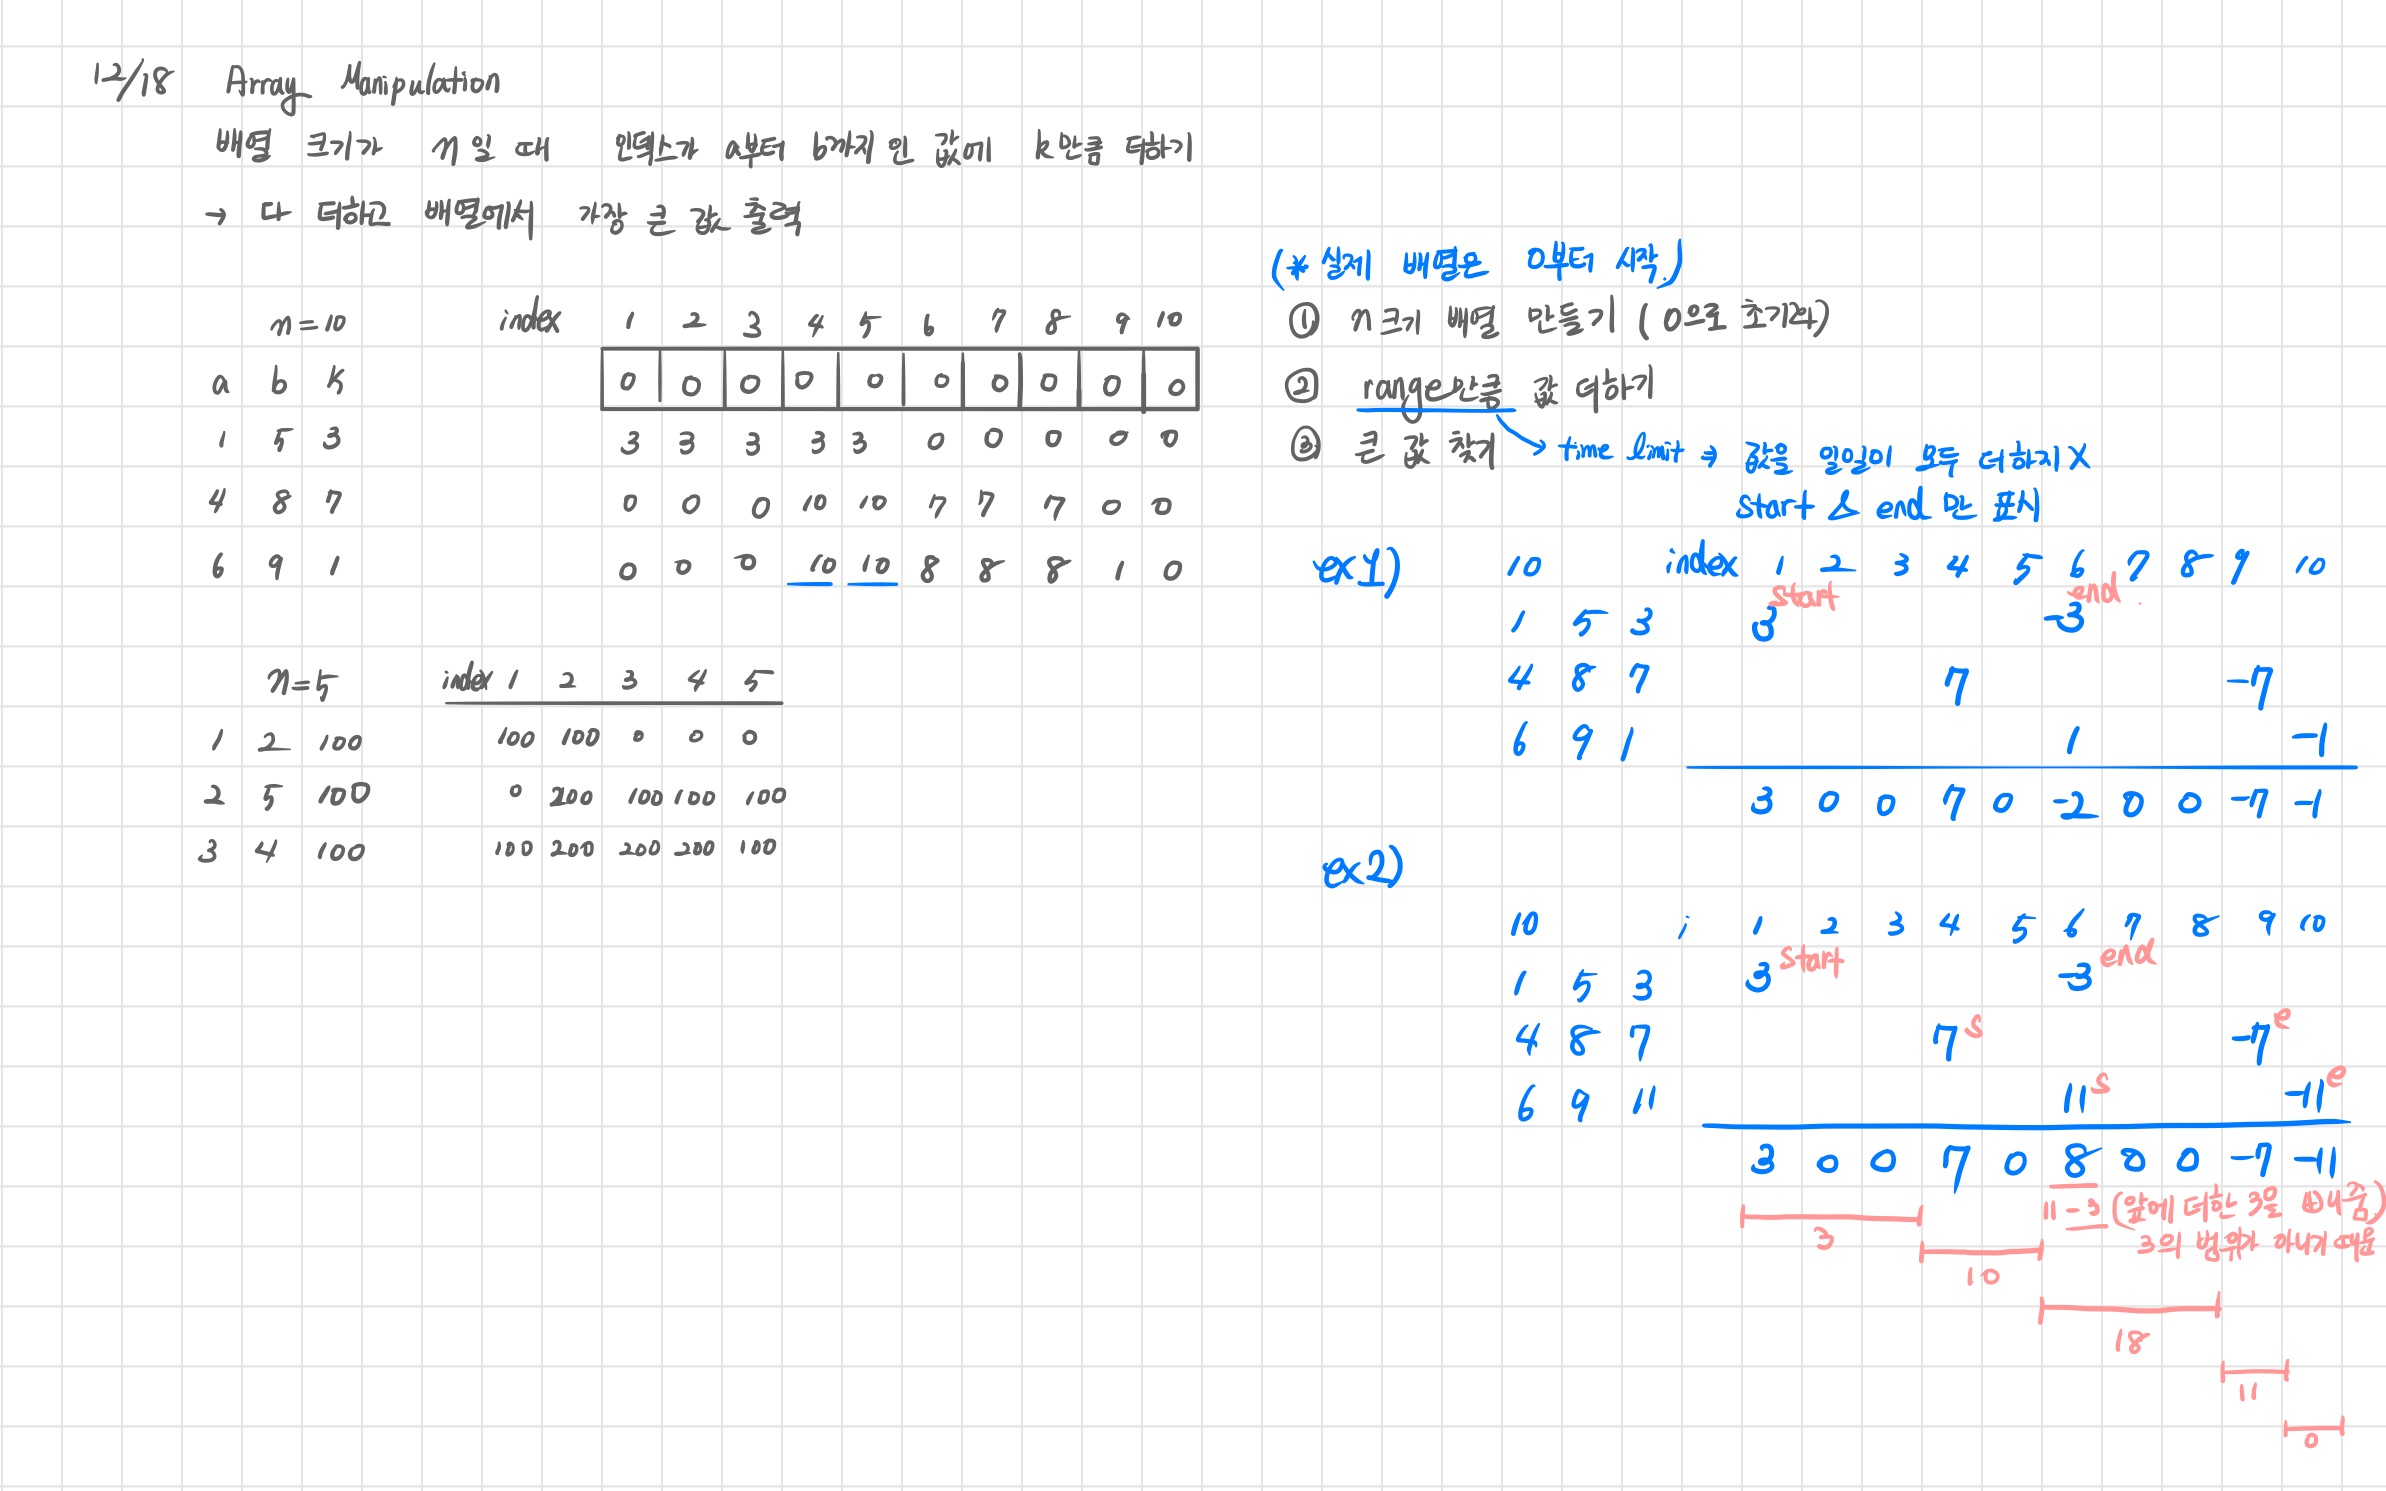 12/18 Array Manipulation
배열 크기가 n일 때 인덱스가 a부터 b까지 인 값에 k만큼 더하기
→ 다 더하고 배열에서 가장 큰 값 출력
n=10 index 1 2 3 4 5 6 7 8 9 10
a b k 0 0 0 0 0 0 0 0 0 0
1 5 3 3 3 3 3 3 0 0 0 0 0
4 8 7 0 0 0 10 10 7 7 7 0 0
6 9 1 0 0 0 10 10 8 8 8 1 0
n=5 index 1 2 3 4 5
1 2 100 100 100 0 0 0
2 5 100 0 200 100 100 100
3 4 100 100 200 200 200 100
(* 실제 배열은 0부터 시작)
① n크기 배열 만들기 (0으로 초기화)
② range만큼 값 더하기
③ 큰 값 찾기
→ time limit → 값을 일일이 모두 더하지 X
start & end 만 표시
ex1) 10 index 1 2 3 4 5 6 7 8 9 10
start end
1 5 3 3 -3
4 8 7 7 -7
6 9 1 1 -1
3 0 0 7 0 -2 0 0 -7 -1
ex2)
10 i 1 2 3 4 5 6 7 8 9 10
1 5 3 3 start -3 end
4 8 7 7 s -7 e
6 9 11 11 s -11 e
3 0 0 7 0 8 0 0 -7 -11
11-3 (앞에 더한 3을 빼줌)
3의 범위가 아니기 때문
3
10
18
11
0